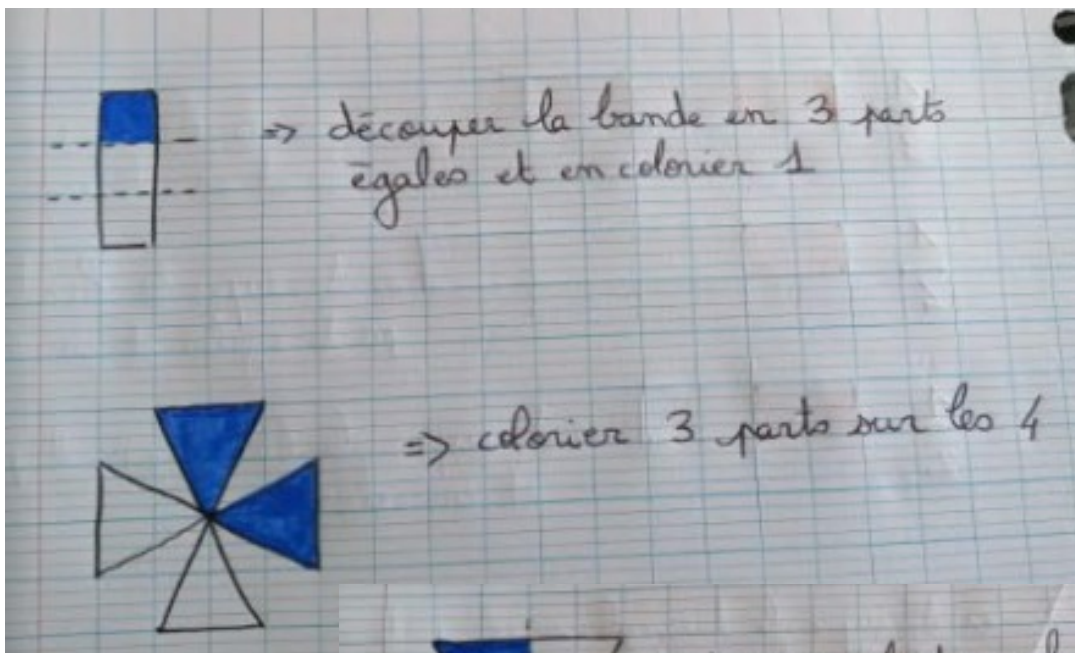 => découper la bande en 3 parts
égales et en colorier 1
=> colorier 3 parts sur les 4